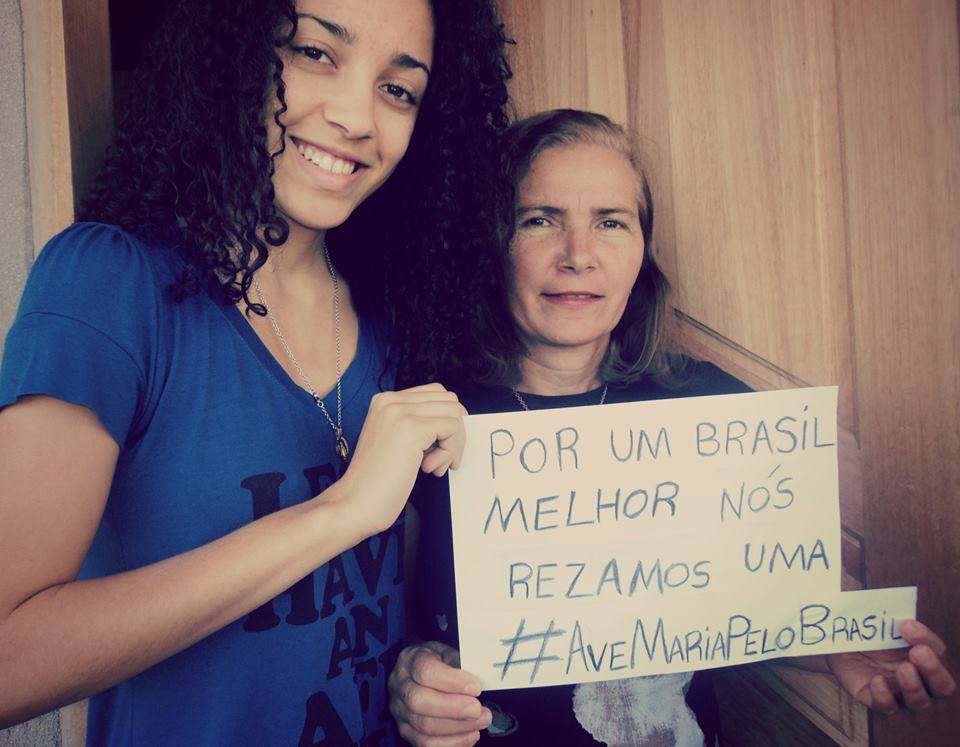 POR UM BRASIL
MELHOR NÓS
REZAMOS UMA
#AVEMARIAPELOBRASIL
HAVE
AN